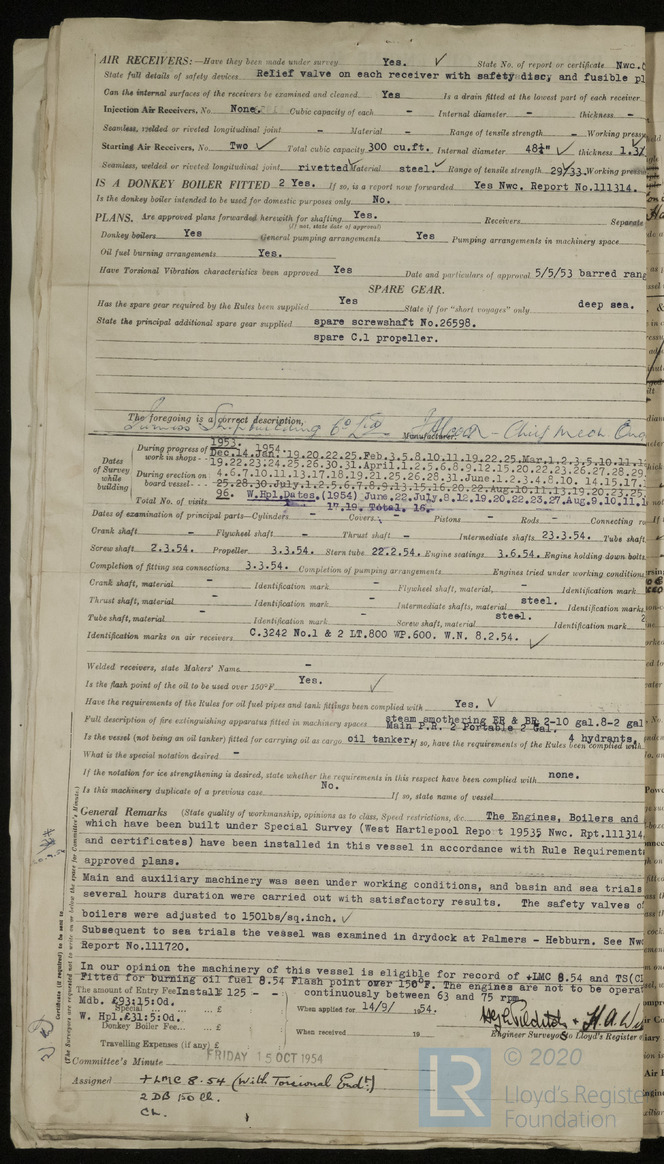 AIR RECEIVERS:—Have they been made under survey Yes. ✓ State No. of report or certificate Nwc.
State full details of safety devices Relief valve on each receiver with safety disc, and fusible pl
Can the internal surfaces of the receivers be examined and cleaned Yes Is a drain fitted at the lowest part of each receiver
Injection Air Receivers, No. None. Cubic capacity of each - Internal diameter - thickness -
Seamless, welded or riveted longitudinal joint - Material - Range of tensile strength - Working press
Starting Air Receivers, No. Two ✓ Total cubic capacity 300 cu.ft. Internal diameter 48½" ✓ thickness 1.3
Seamless, welded or riveted longitudinal joint rivetted ✓ Material steel. ✓ Range of tensile strength 29/33. Working pressu
IS A DONKEY BOILER FITTED 2 Yes. If so, is a report now forwarded Yes Nwc. Report No.111314.
Is the donkey boiler intended to be used for domestic purposes only No.
PLANS. Are approved plans forwarded herewith for shafting Yes. Receivers Separate
(If not, state date of approval)
Donkey boilers Yes General pumping arrangements Yes Pumping arrangements in machinery space
Oil fuel burning arrangements Yes.
Have Torsional Vibration characteristics been approved Yes Date and particulars of approval 5/5/53 barred rang
SPARE GEAR.
Has the spare gear required by the Rules been supplied Yes State if for "short voyages" only deep sea.
State the principal additional spare gear supplied spare screwshaft No.26598.
spare C.1 propeller.
The foregoing is a correct description,
Shipbuilding Co Ltd - Chief Mech Eng
Manufacturer.
Dates of Survey while building
During progress of work in shops - - 1953. 1954. Dec.14.Jan.19.20.22.25.Feb.3.5.8.10.11.19.22.25.Mar.1.2.3.5.10.11.1
19.22.23.24.25.26.30.31.April.1.2.5.6.8.9.12.15.20.22.23.26.27.28.29
During erection on board vessel - - 4.6.7.10.11.13.17.18.19.21.25.26.28.31.June.1.2.3.4.8.10. 14.15.17.
25.28.30.July.1.2.5.6.7.8.9.13.15.16.20.22.Aug.10.11.13.19.20.23.25
Total No. of visits 96. W.Hpl.Dates.(1954) June.22.July.8.12.19.20.22.23.27.Aug.9.10.11.1
17.19. Total. 16.
Dates of examination of principal parts—Cylinders - Covers - Pistons - Rods - Connecting ro
Crank shaft - Flywheel shaft - Thrust shaft - Intermediate shafts 23.3.54. Tube shaft
Screw shaft 2.3.54. Propeller 3.3.54. Stern tube 22.2.54. Engine seatings 3.6.54. Engine holding down bolts
Completion of fitting sea connections 3.3.54. Completion of pumping arrangements Engines tried under working condition
Crank shaft, material - Identification mark - Flywheel shaft, material, - Identification mark
Thrust shaft, material - Identification mark - Intermediate shafts, material steel. Identification marks
Tube shaft, material - Identification mark - Screw shaft, material steel. Identification mark
Identification marks on air receivers C.3242 No.1 & 2 LT.800 WP.600. W.N. 8.2.54. ✓
Welded receivers, state Makers' Name -
Is the flash point of the oil to be used over 150°F. Yes. ✓
Have the requirements of the Rules for oil fuel pipes and tank fittings been complied with Yes. ✓
Full description of fire extinguishing apparatus fitted in machinery spaces steam smothering ER & BR 2-10 gal.8-2 gal
Main P.R. 2 Portable 2 Gal.
4 hydrants,
Is the vessel (not being an oil tanker) fitted for carrying oil as cargo oil tanker, If so, have the requirements of the Rules been complied with
What is the special notation desired -
If the notation for ice strengthening is desired, state whether the requirements in this respect have been complied with none.
Is this machinery duplicate of a previous case No. If so, state name of vessel
General Remarks (State quality of workmanship, opinions as to class, Speed restrictions, &c. The Engines, Boilers and
which have been built under Special Survey (West Hartlepool Report 19535 Nwc. Rpt.111314
and certificates) have been installed in this vessel in accordance with Rule Requirement
approved plans.
Main and auxiliary machinery was seen under working conditions, and basin and sea trials
several hours duration were carried out with satisfactory results. The safety valves of
boilers were adjusted to 150lbs/sq.inch. ✓
Subsequent to sea trials the vessel was examined in drydock at Palmers - Hebburn. See Nwc
Report No.111720.
In our opinion the machinery of this vessel is eligible for record of +LMC 8.54 and TS(CL
Fitted for burning oil fuel 8.54 Flash point over 150°F. The engines are not to be operat
continuously between 63 and 75 rpm.
The amount of Entry Fee Install £125 - -
Mdb. £93:15:0d.
Special ... £
W. Hpl.£31:5:0d.
Donkey Boiler Fee... £
Travelling Expenses (if any) £
When applied for 14/9/ 1954.
When received 19
Engineer Surveyors to Lloyd's Register
Committee's Minute FRIDAY 15 OCT 1954
Assigned + LMC 8.54 (With Torsional Endt)
2 DB 150 lb.
CL.
Certificate (if required) to be sent to
(The Surveyors are requested not to write on or below the space for Committee's Minute.)
© 2020
LR
Lloyd's Registe
Foundation